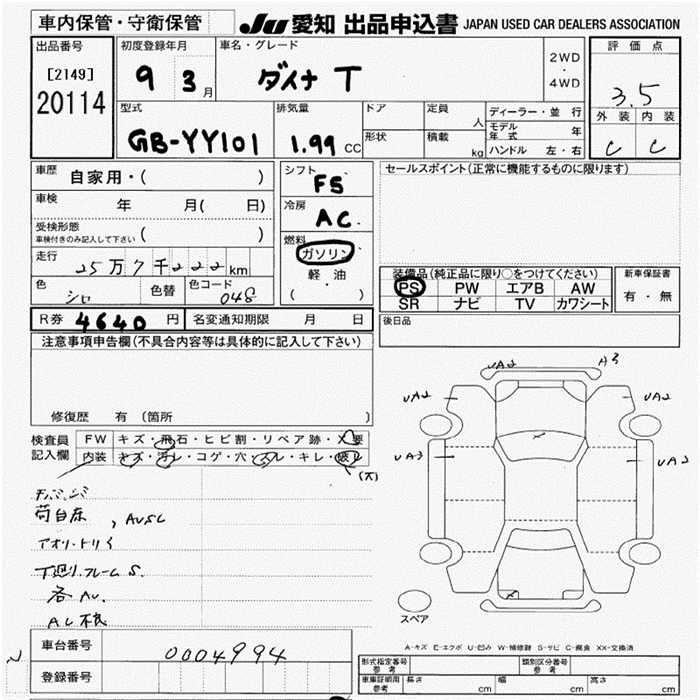 車内保管・守衛保管
JU 愛知 出品申込書 JAPAN USED CAR DEALERS ASSOCIATION
出品番号
[2149]
20114
初度登録年月
9 3 月
車名・グレード
ダイナ T
2WD
・
4WD
評価点
3.5
外装 内装
C C
型式
GB-YY101
排気量
1.99 CC
ドア
定員 人
形状
積載 kg
ディーラー・並行
モデル年式 年
ハンドル 左・右
車歴
自家用・( )
車検
年 月( 日)
受検形態
車検付きのみ記入して下さい ( )
走行
25万7千222km
色
シロ
色替
色コード
048
シフト
F5
冷房
AC
燃料
ガソリン
軽油
( ・ )
セールスポイント(正常に機能するものに限ります)
装備品(純正品に限り○をつけてください)
PS PW エアB AW
SR ナビ TV カワシート
新車保証書
有・無
後日品
R券 4640 円
名変通知期限 月 日
注意事項申告欄(不具合内容等は具体的に記入して下さい)
修復歴 有 (箇所 )
検査員
記入欄
FW キズ・飛石・ヒビ割・リペア跡・X要
内装 キズ・汚レ・コゲ・穴・スレ・キレ・吸ル
(大)
荷台床、AUSC
アオリ・トリイ
下廻リフレームS.
各AU.
UA2 A3
UA2 UA2
UA3 UA2
スペア
A-キズ E-エクボ U-凹み W-補修跡 S-サビ C-腐食 XX-交換済
車台番号
0004994
登録番号
形式指定番号
参考
類別区分番号
参考
車庫証明用
参考
長さ cm 幅 cm 高さ cm